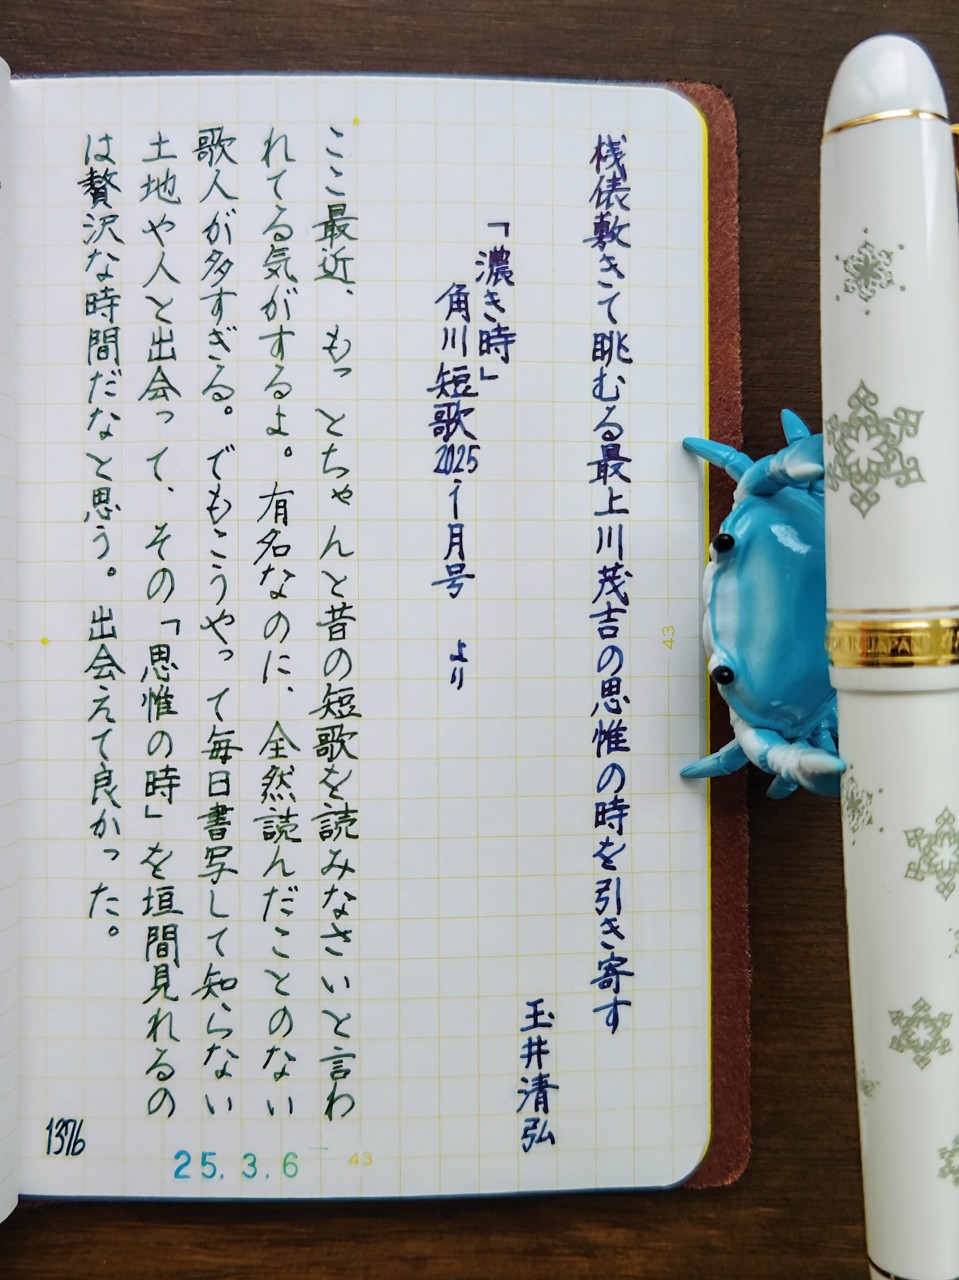 桟俵敷きて眺むる最上川茂吉の思惟の時を引き寄す
玉井清弘
「濃き時」
角川短歌2025年1月号 より
ここ最近、もっとちゃんと昔の短歌を読みなさいと言わ
れてる気がするよ。有名なのに、全然読んだことのない
歌人が多すぎる。でもこうやって毎日書写して知らない
土地や人と出会って、その「思惟の時」を垣間見れるの
は贅沢な時間だなと思う。出会えて良かった。
1376
25.3.6
43
43